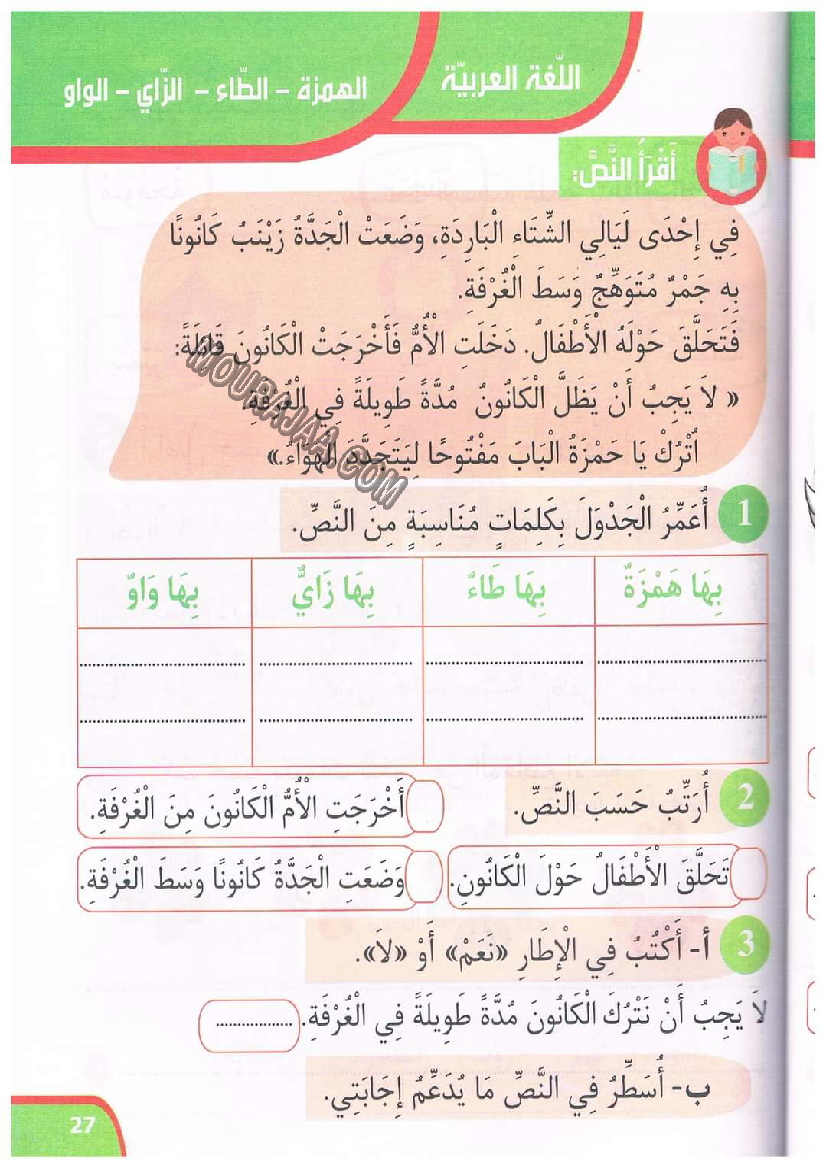 اللّغة العربيّة
الهمزة – الطّاء – الزّاي – الواو
أَقْرَأُ النَّصَّ:
فِي إِحْدَى لَيَالِي الشِّتَاءِ الْبَارِدَةِ، وَضَعَتْ الْجَدَّةُ زَيْنَبُ كَانُونًا
بِهِ جَمْرٌ مُتَوَهِّجٌ وَسَطَ الْغُرْفَةِ.
فَتَحَلَّقَ حَوْلَهُ الْأَطْفَالُ. دَخَلَتِ الْأُمُّ فَأَخْرَجَتْ الْكَانُونَ قَائِلَةً:
« لاَ يَجِبُ أَنْ يَظَلَّ الْكَانُونُ مُدَّةً طَوِيلَةً فِي الْغُرْفَةِ.
اُتْرُكْ يَا حَمْزَةُ الْبَابَ مَفْتُوحًا لِيَتَجَدَّدَ الْهَوَاءُ.»
MOURAJAA.COM
1 أُعَمِّرُ الْجَدْوَلَ بِكَلِمَاتٍ مُنَاسِبَةٍ مِنَ النَّصِّ.
بِهَا هَمْزَةٌ بِهَا طَاءٌ بِهَا زَايٌّ بِهَا وَاوٌ
2 أُرَتِّبُ حَسَبَ النَّصِّ.
أَخْرَجَتِ الْأُمُّ الْكَانُونَ مِنَ الْغُرْفَةِ.
تَحَلَّقَ الْأَطْفَالُ حَوْلَ الْكَانُونِ.
وَضَعَتِ الْجَدَّةُ كَانُونًا وَسَطَ الْغُرْفَةِ.
3 أ- أَكْتُبُ فِي الْإِطَارِ «نَعَمْ» أَوْ «لاَ».
لاَ يَجِبُ أَنْ نَتْرُكَ الْكَانُونَ مُدَّةً طَوِيلَةً فِي الْغُرْفَةِ. ..................
ب- أُسَطِّرُ فِي النَّصِّ مَا يُدَعِّمُ إِجَابَتِي.
27